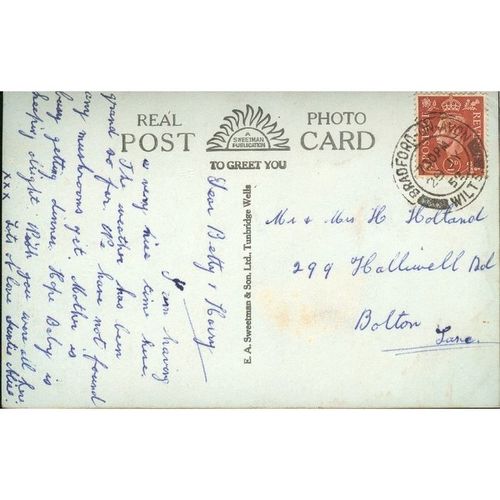 REAL PHOTO
POST CARD
A
SWEETMAN
PUBLICATION
TO GREET YOU
E. A. Sweetman & Son. Ltd., Tunbridge Wells
POSTAGE REVENUE
BRADFORD-ON-AVON
WILTS
Mr & Mrs H. Holland
299 Halliwell Rd
Bolton
Lancs.
Dear Betty & Harry
I am having
a very nice time here.
The weather has been
grand so far. We have not found
any mushrooms yet. Mother is
busy getting dinner. Hope Baby is
keeping alright. Wish you were all here
Lots of love Auntie
xxx